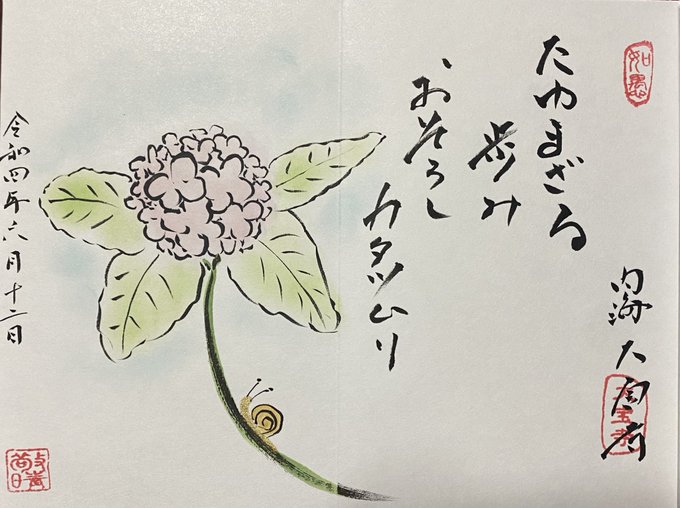 如愚
たゆまざる
歩み
おそろし
カタツムリ
内海大
令和四年六月十二日